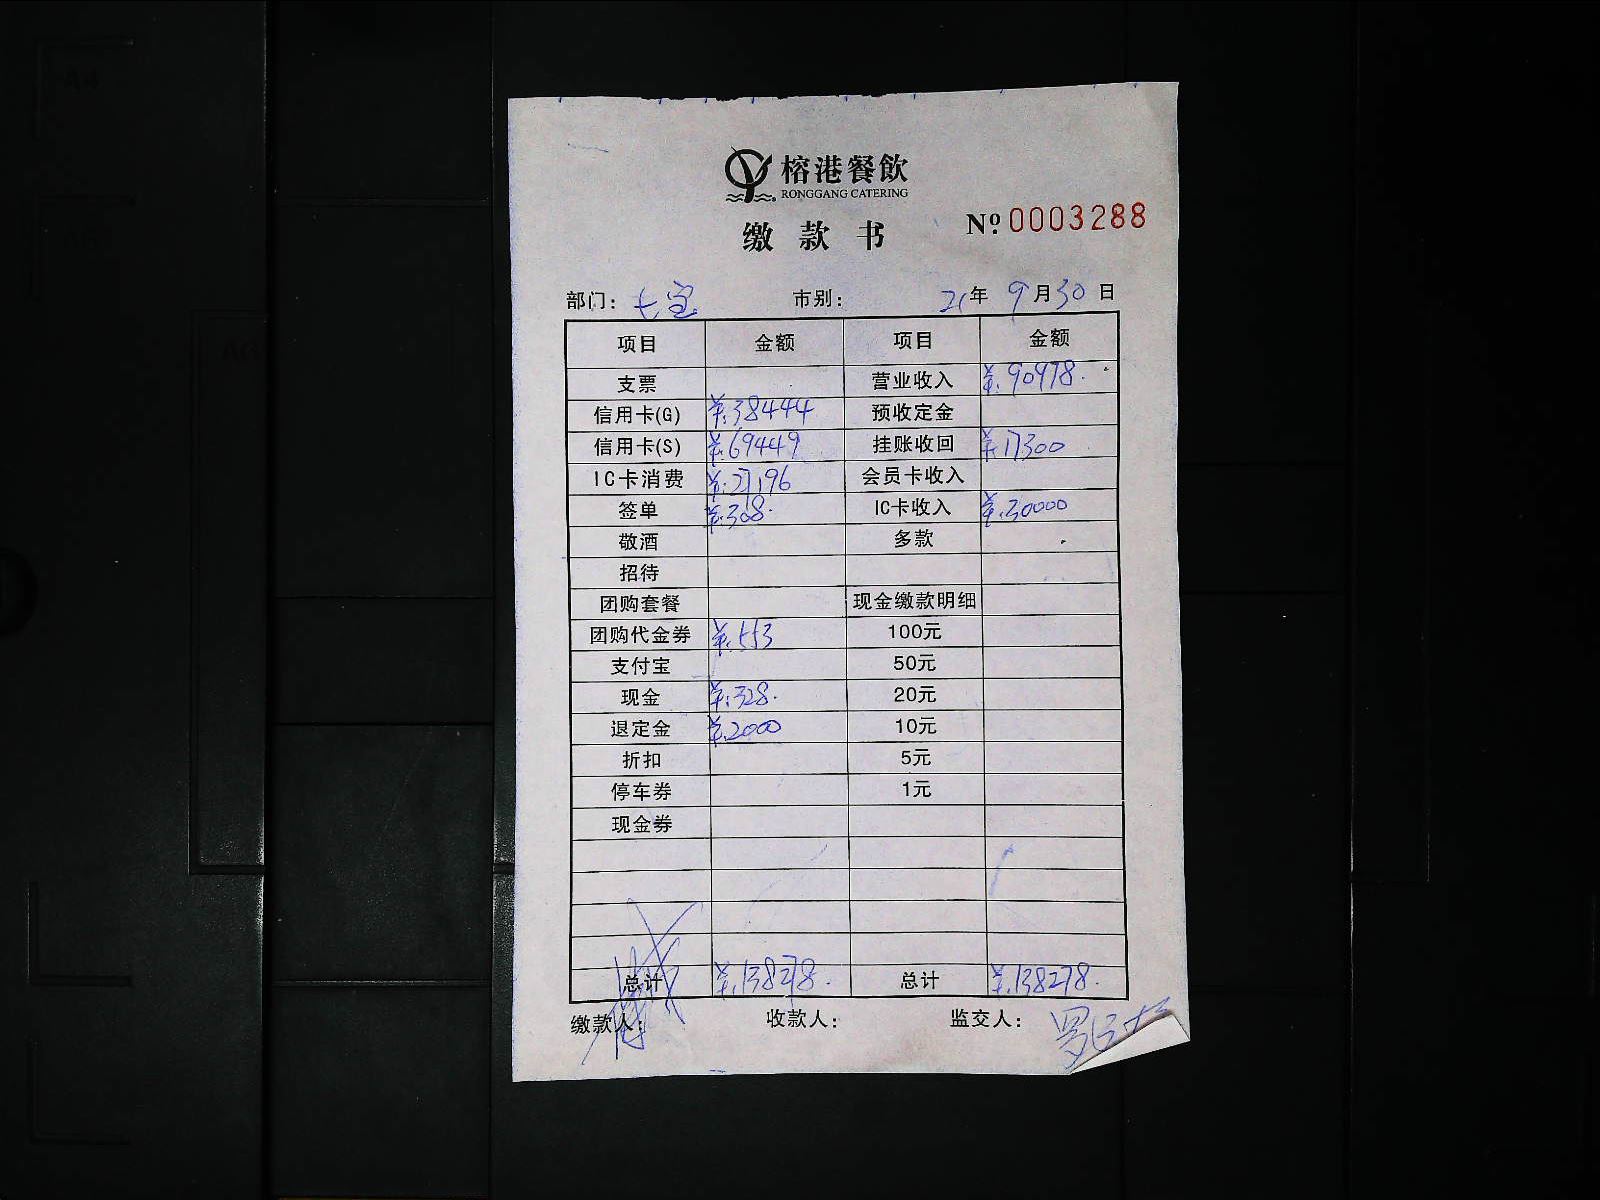 榕港餐飲
RONGGANG CATERING
缴款书 Nº 0003288
部门: 七宝 市别: 21年 9月30日
项目 金额 项目 金额
支票 营业收入 ¥.90978.
信用卡(G) ¥.38444 预收定金
信用卡(S) ¥.69449 挂账收回 ¥.17300
IC卡消费 ¥.27196 会员卡收入
签单 ¥.308. IC卡收入 ¥.30000
敬酒 多款
招待
团购套餐 现金缴款明细
团购代金券 ¥.553 100元
支付宝 50元
现金 ¥.328. 20元
退定金 ¥.2000 10元
折扣 5元
停车券 1元
现金券
总计 ¥.138278. 总计 ¥.138278.
缴款人: 收款人: 监交人: